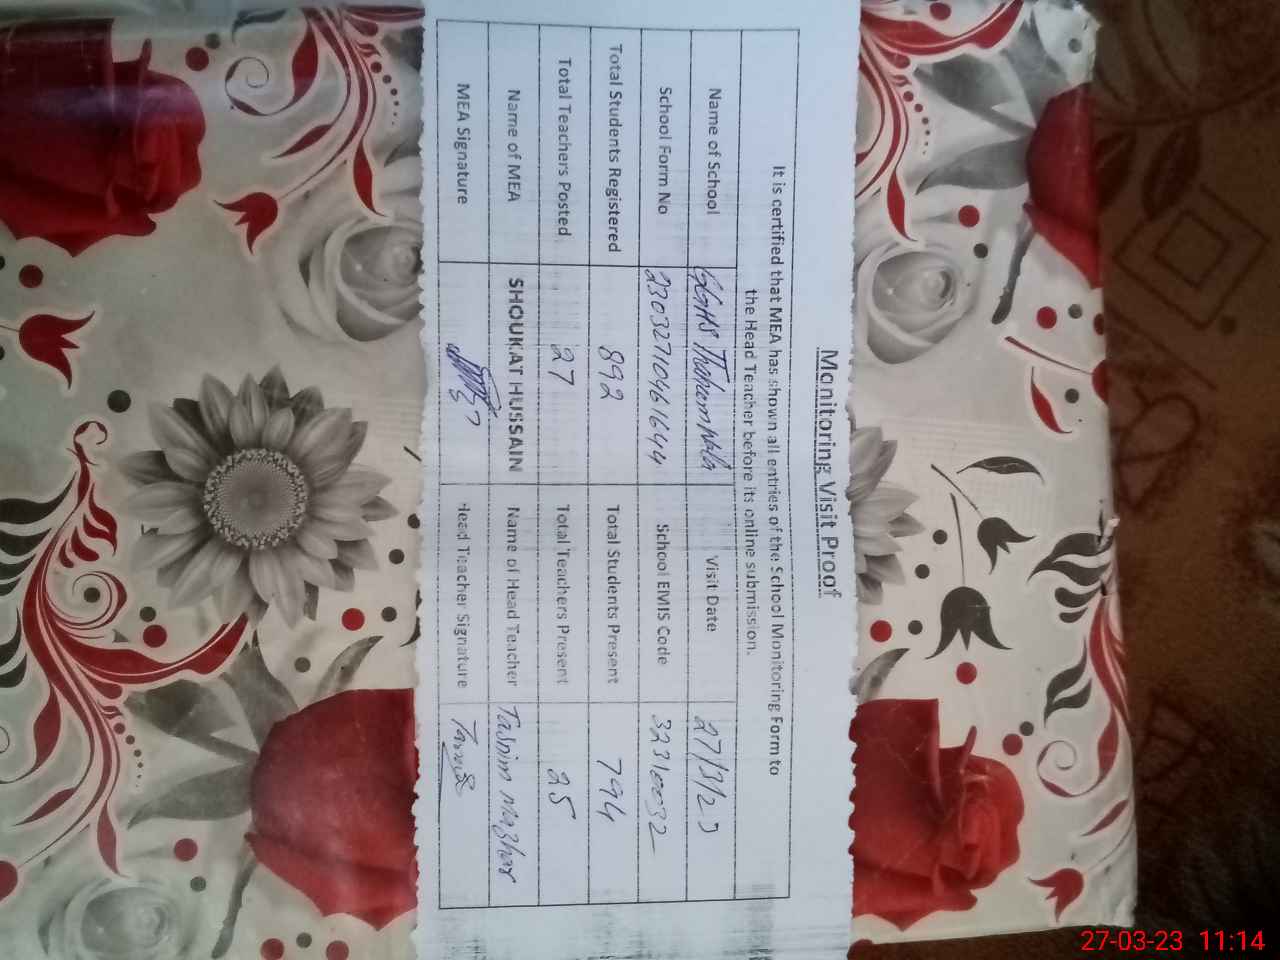 Monitoring Visit Proof
It is certified that MEA has shown all entries of the School Monitoring Form to
the Head Teacher before its online submission.
Name of School GGHS Visit Date 27/3/23
School Form No 23032710461644 School EMIS Code 32310032
Total Students Registered 892 Total Students Present 794
Total Teachers Posted 27 Total Teachers Present 25
Name of MEA SHOUKAT HUSSAIN Name of Head Teacher Tasnim Mazhar
MEA Signature Head Teacher Signature
27-03-23 11:14